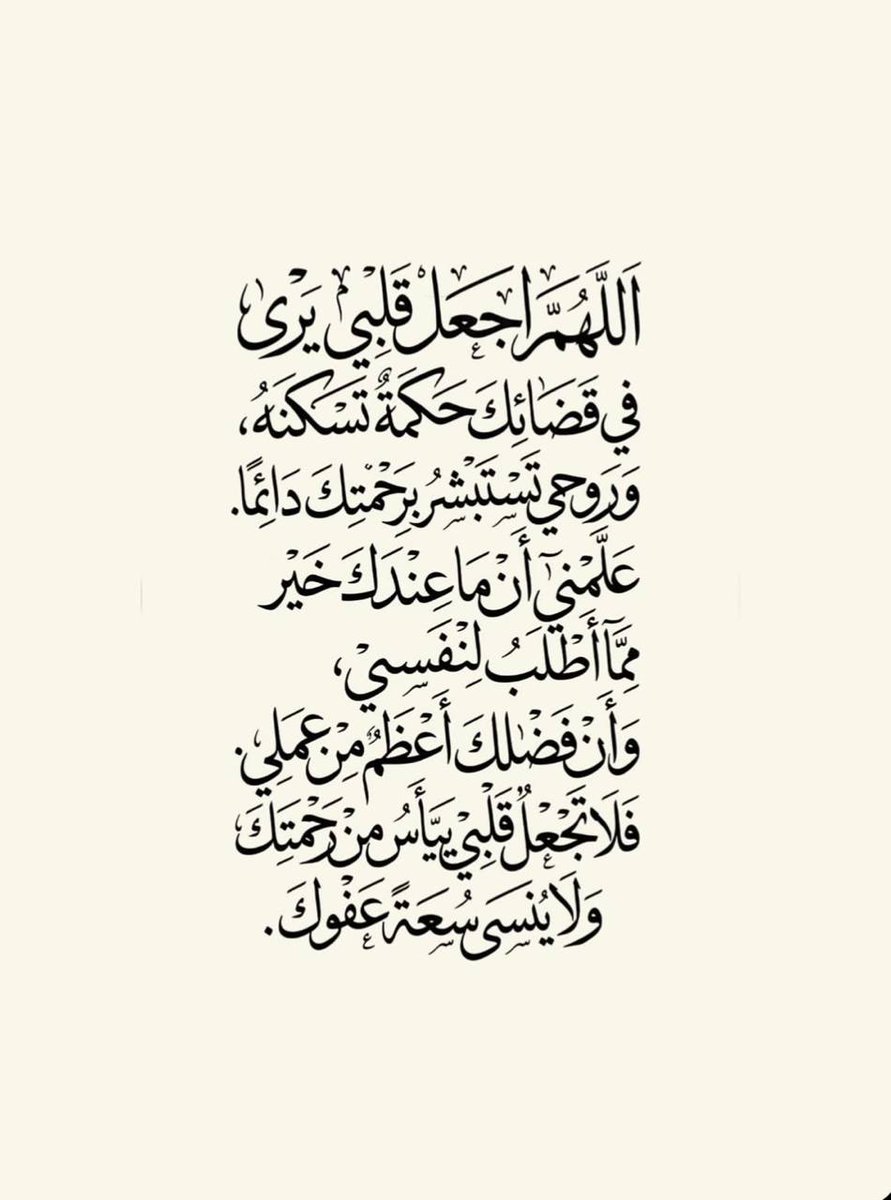 اَللَّهُمَّ اجَعَلْ قَلِبْي يَرْى
في قَضَائِكَ حَكَمَةٌ تَسْكنَهُ،
وَرَوحي تَسْتَبْشرُ بِرَحْمَتِكَ دَائِمًا.
عَلَّمْنيٓ أَنْ مَا عِنْدَكَ خَيْر
مِمَّآ أَطْلَبُ لِنْفَسيْ،
وَأَنْ فَضْلكَ أَعْظَمٌ مِنْ عَمَلِي.
فَلَا تَجْعْلٌ قَلْبيْ يَيَّأَسُ مِنْ رَحْمَتِكَ
وَلَا يُنَسَى سُعَةً عَفْوكَ.